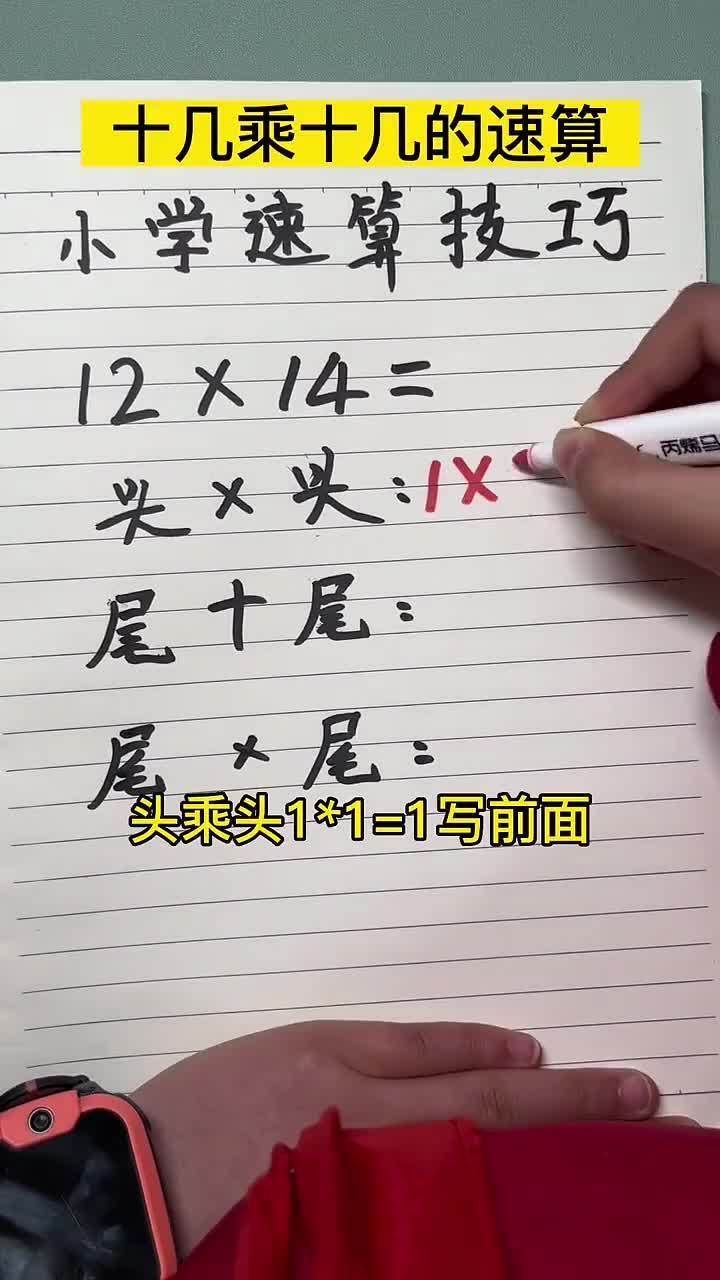 十几乘十几的速算
小学速算技巧
12×14=
头×头:1×
丙烯马
尾+尾:
尾×尾:
头乘头1*1=1写前面